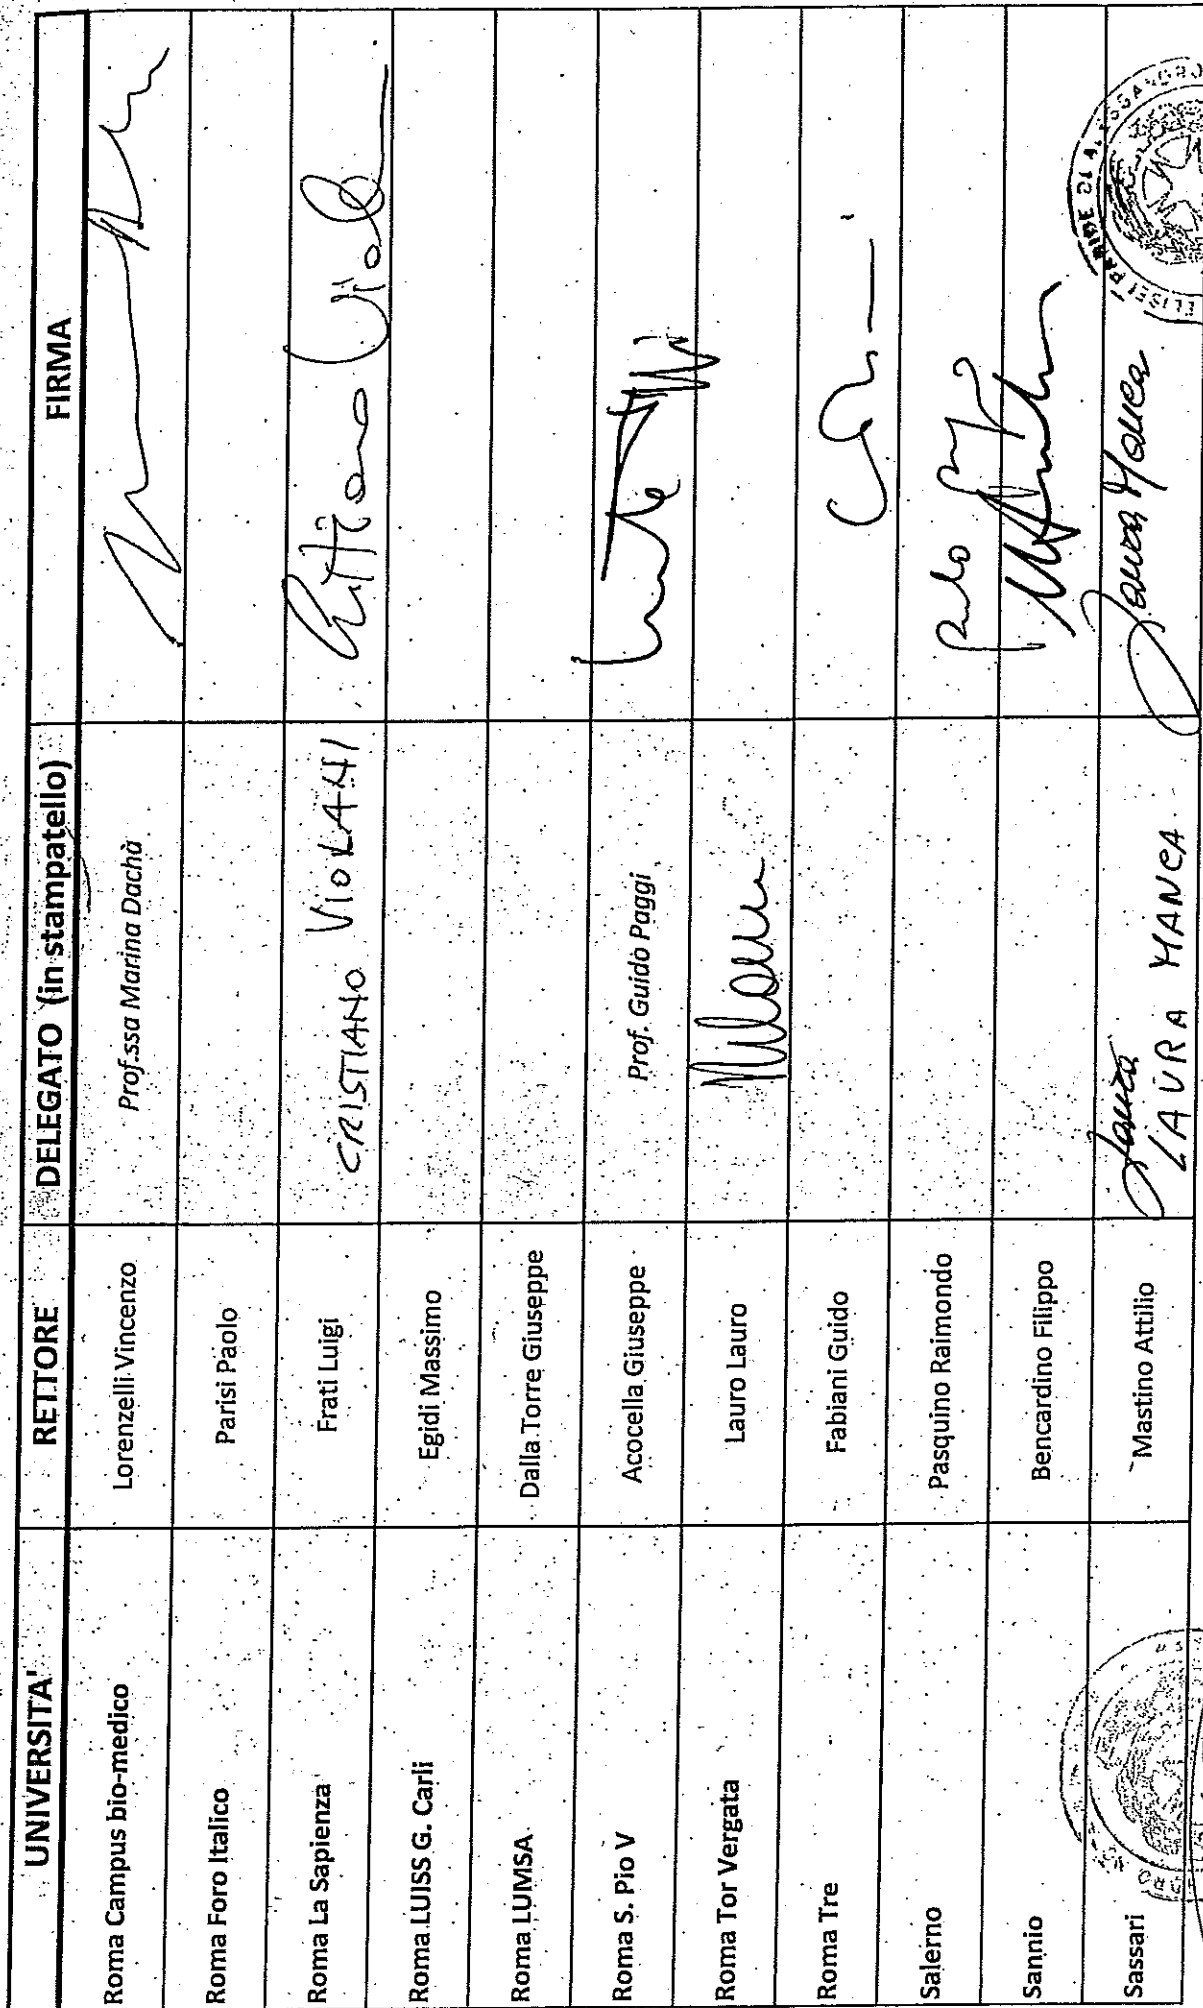 UNIVERSITA' RETTORE DELEGATO (in stampatello) FIRMA
Roma Campus bio-medico Lorenzelli Vincenzo Prof.ssa Marina Dachà
Roma Foro Italico Parisi Paolo
Roma La Sapienza Frati Luigi CRISTIANO VIOLANI
Roma LUISS G. Carli Egidi Massimo
Roma LUMSA Dalla Torre Giuseppe
Roma S. Pio V Acocella Giuseppe Prof. Guido Paggi
Roma Tor Vergata Lauro Lauro
Roma Tre Fabiani Guido
Salerno Pasquino Raimondo
Sannio Bencardino Filippo
Sassari Mastino Attilio LAURA MANCA Laura Manca